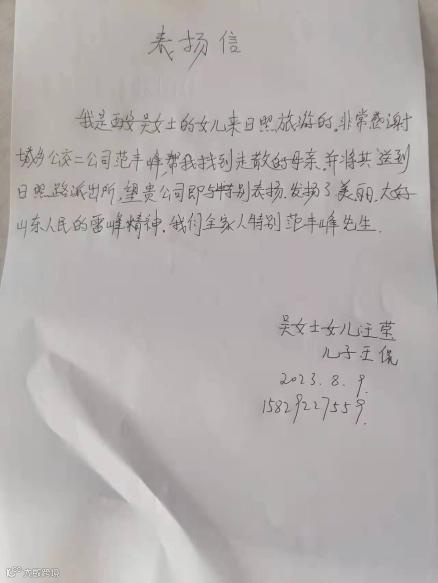 表扬信
我是西安吴女士的女儿来日照旅游的.非常感谢
城乡公交二公司范丰峰,帮我找到走散的母亲.并将其送到
日照路派出所,望贵公司即予特别表扬.发扬了美丽.大好
山东人民的雷峰精神.我们全家人特别范丰峰先生.
吴女士女儿汪莹
儿子王侃
2023.8.9.
15829227559.